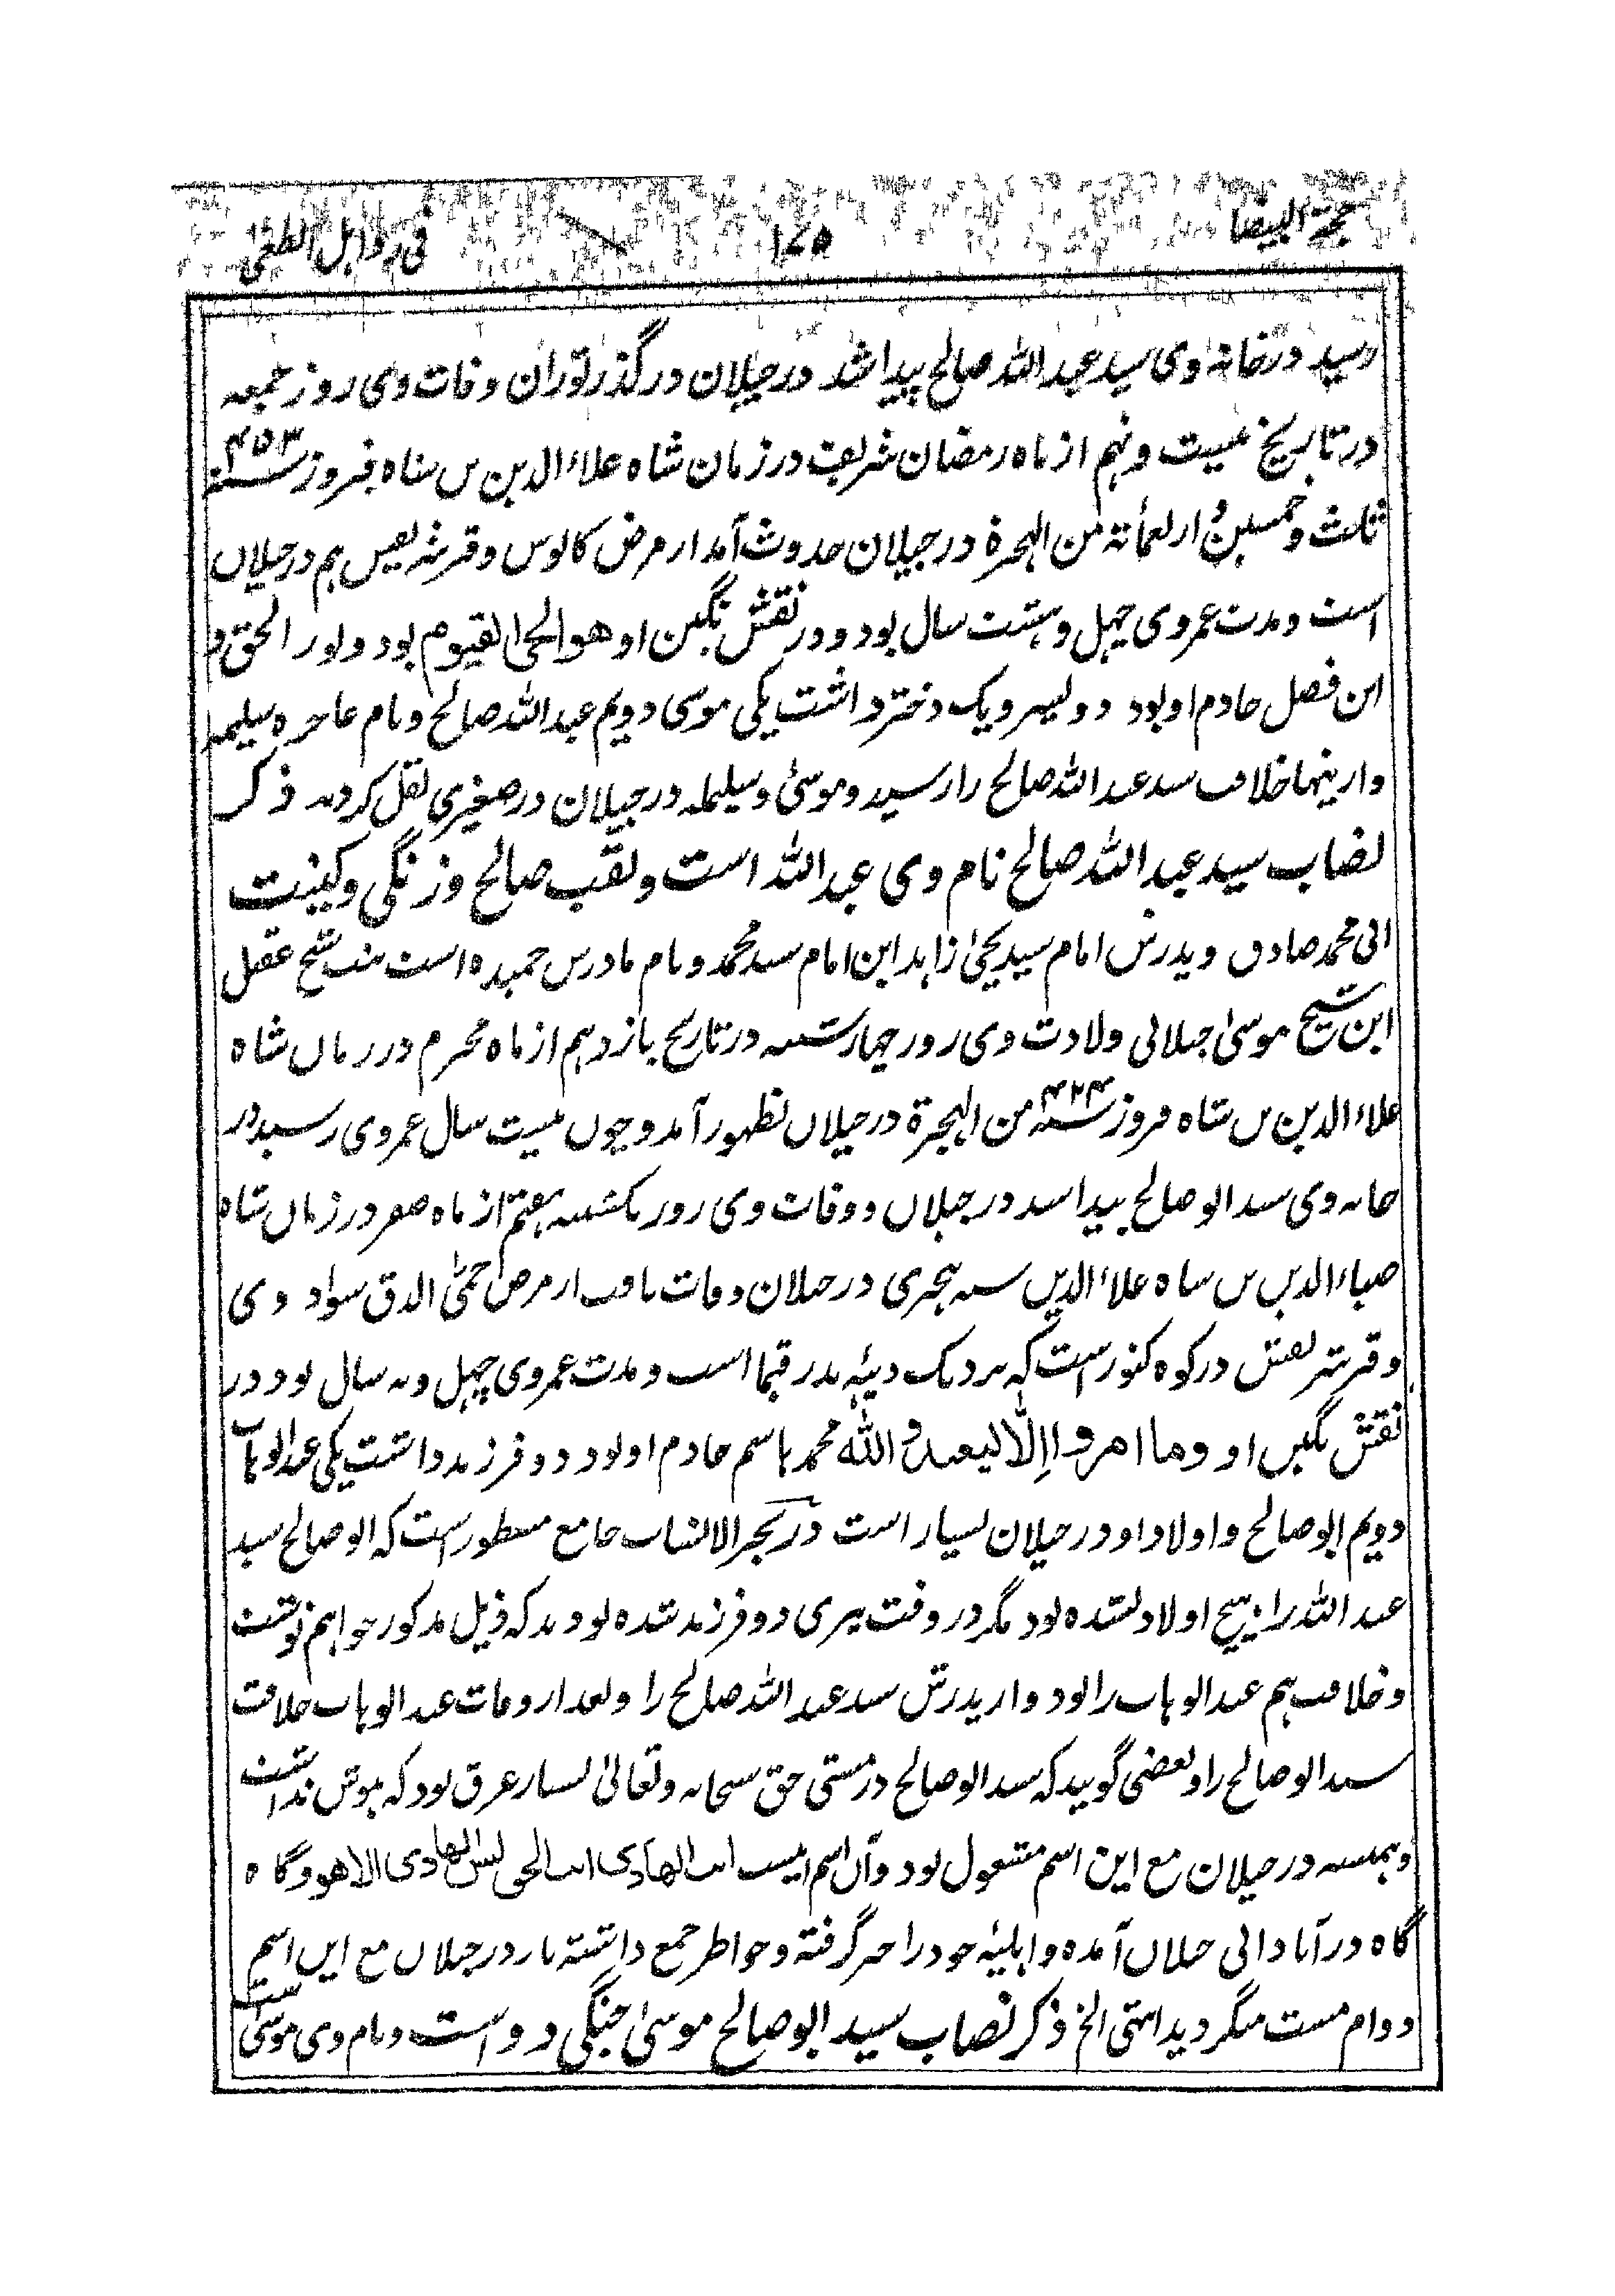 حجة البیضا ۱۷۵ فی رد اہل الطغی
رسید در خانهٔ وی سید عبد الله صالح پیدا شد در جیلان در گذر توران وفات وی روز جمعه
در تاریخ بیست و نهم از ماه رمضان شریف در زمان شاه علاء الدین بن شاه فیروز سنه ۴۵۳
ثلث و خمسین و اربعمائة من الهجرة در جیلان حدوث آمد از مرض کابوس و قبر شریفش هم در جیلان
است و مدت عمر وی چهل و هشت سال بود و در نقش نگین او هو الحی القیوم بود و نور الحق
ابن فضل خادم او بود دو پسر و یک دختر داشت یکی موسی دویم عبد الله صالح و نام عاجره سلیمه
و از ینها خلافت سید عبد الله صالح را رسید و موسیٰ و سلیمه در جیلان در صغیری نقل کردند ذکر
نصاب سید عبد الله صالح نام وی عبد الله است و لقب صالح و زنگی و کینیت
ابی محمد صادق و پدرش امام سید یحییٰ زاهد ابن امام سید محمد و نام مادرش حمیده است بنت شیخ عقیل
ابن شیخ موسیٰ جیلانی ولادت وی روز چهارشنبه در تاریخ یازدهم از ماه محرم در زمان شاه
علاء الدین بن شاه فیروز سنه ۴۲۴ من الهجرة در جیلان بظهور آمد و چون بیست سال عمر وی رسید در
خانه وی سید ابو صالح پیدا شد در جیلان و وفات وی روز یکشنبه هفتم از ماه صفر در زمان شاه
ضیاء الدین بن شاه علاء الدین سنه هجری در جیلان وفات یافت از مرض حمّی الدق سواد وی
و قبر شریفش در کوه کنور است که نزدیک دیهٔ بدر قیما است و مدت عمر وی چهل و نه سال بود در
نقش نگین او وما امروا إلّا لیعبدوا اللّٰه محمد باسم خادم او بود دو فرزند داشت یکی عبد الوهاب
دویم ابو صالح و اولاد او در جیلان بسیار است در بحر الانساب جامع مسطور است که ابو صالح سید
عبد الله را هیچ اولاد نشده بود مگر در وقت پیری دو فرزند شده بودند که ذیل مذکور خواهم نوشت
و خلافت هم عبد الوهاب را بود و از پدرش سید عبد الله صالح را و بعد از وفات عبد الوهاب خلافت
سید ابو صالح را و بعضی گویند که سید ابو صالح در مستی حق سبحانه و تعالیٰ بسیار غرق بود که هوش نداشت
و همیشه در جیلان مع این اسم مشغول بود و آن اسم اینست انت الهادی انت الحق لیس الهادی الا هو و گاه
گاه در آبادانی جیلان آمده و اهلیهٔ خود را خبر گرفته و خواطر جمع داشته باز در جیلان مع این اسم
دوام مست میگردید انتهی الخ ذکر نصاب سید ابو صالح موسیٰ جنگی دوست و نام وی موسیٰ است